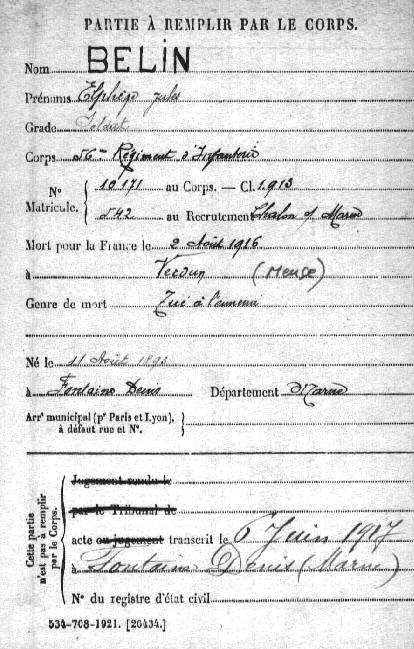 PARTIE À REMPLIR PAR LE CORPS.
Nom BELIN
Prénoms Elphège Jules
Grade Soldat
Corps 56me Régiment d'Infanterie
No Matricule. { 10171 au Corps. — Cl. 1913
542 au Recrutement Chalon s/ Marne
Mort pour la France le 2 Août 1916
à Verdun (Meuse)
Genre de mort Tué à l'ennemi
Né le 11 Août 1893
à Fontaine Denis Département Marne
Arrt municipal (pr Paris et Lyon), }
à défaut rue et No.
Cette partie n'est pas à remplir par le Corps.
Jugement rendu le
par le Tribunal de
acte ou jugement transcrit le 6 Juin 1917
à Fontaine Denis (Marne)
No du registre d'état civil
534-708-1921. [26434.]